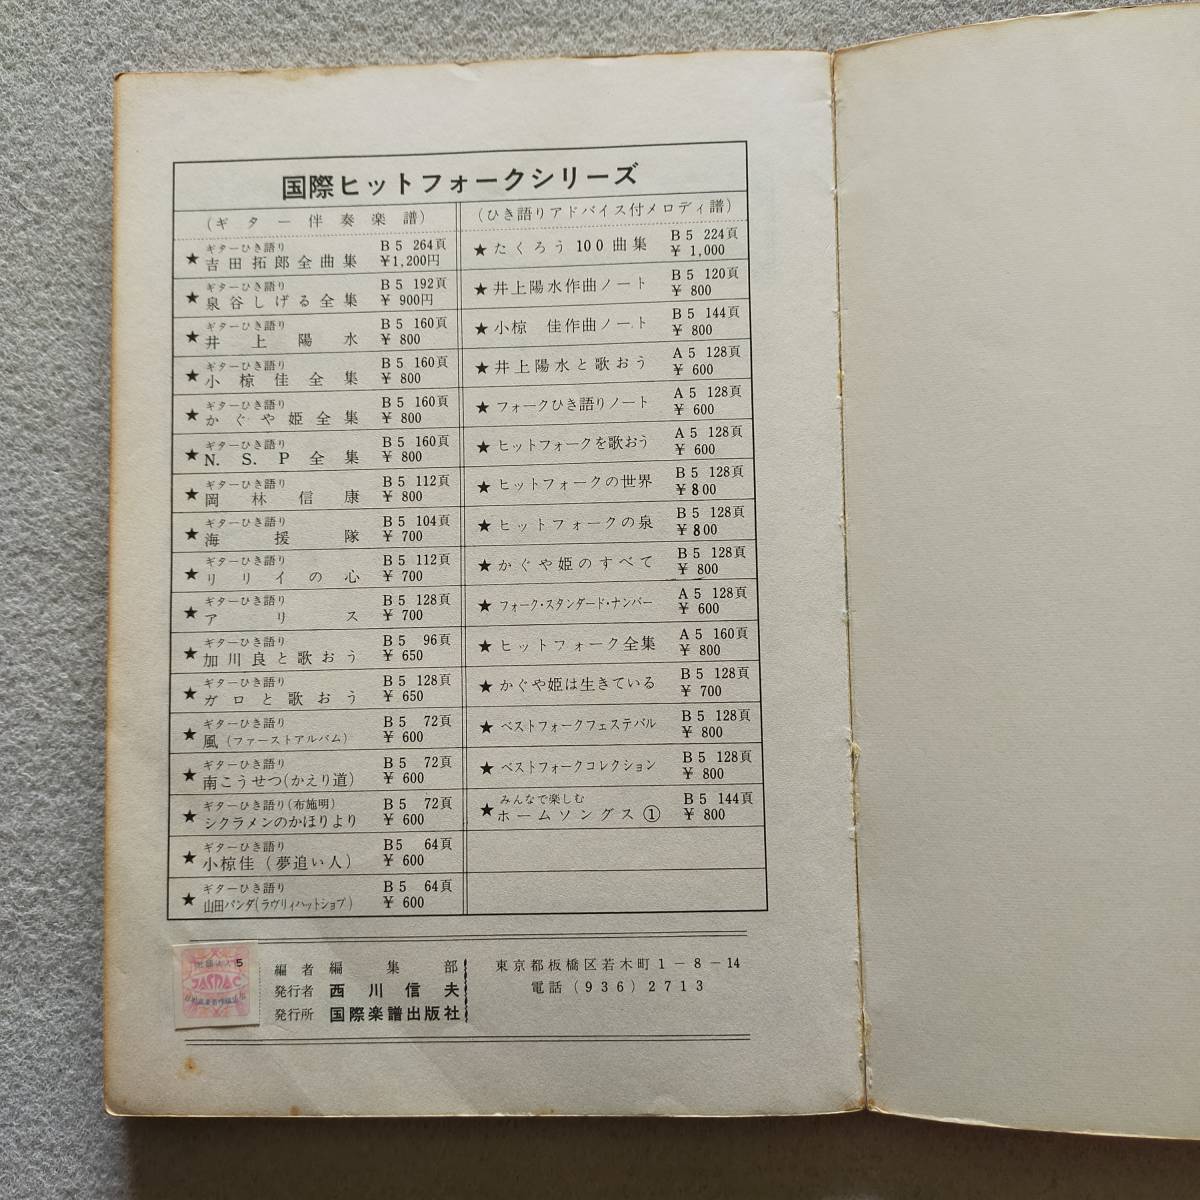 国際ヒットフォークシリーズ
(ギター伴奏楽譜)
ギターひき語り B5 264頁
★ 吉田拓郎全曲集 ¥1,200円
ギターひき語り B5 192頁
★ 泉谷しげる全集 ¥ 900円
ギターひき語り B5 160頁
★ 井上陽水 ¥ 800
ギターひき語り B5 160頁
★ 小椋佳全集 ¥ 800
ギターひき語り B5 160頁
★ かぐや姫全集 ¥ 800
ギターひき語り B5 160頁
★ N.S.P全集 ¥ 800
ギターひき語り B5 112頁
★ 岡林信康 ¥ 800
ギターひき語り B5 104頁
★ 海援隊 ¥ 700
ギターひき語り B5 112頁
★ リリイの心 ¥ 700
ギターひき語り B5 128頁
★ アリス ¥ 700
ギターひき語り B5 96頁
★ 加川良と歌おう ¥ 650
ギターひき語り B5 128頁
★ ガロと歌おう ¥ 650
ギターひき語り B5 72頁
★ 風(ファーストアルバム) ¥ 600
ギターひき語り B5 72頁
★ 南こうせつ(かえり道) ¥ 600
ギターひき語り(布施明) B5 72頁
★ シクラメンのかほりより ¥ 600
ギターひき語り B5 64頁
★ 小椋佳(夢追い人) ¥ 600
ギターひき語り B5 64頁
★ 山田パンダ(ラヴリィハットショプ) ¥ 600
(ひき語りアドバイス付メロディ譜)
★ たくろう100曲集 B5 224頁
¥ 1,000
★ 井上陽水作曲ノート B5 120頁
¥ 800
★ 小椋 佳作曲ノート B5 144頁
¥ 800
★ 井上陽水と歌おう A5 128頁
¥ 600
★ フォークひき語りノート A5 128頁
¥ 600
★ ヒットフォークを歌おう A5 128頁
¥ 600
★ ヒットフォークの世界 B5 128頁
¥ 800
★ ヒットフォークの泉 B5 128頁
¥ 800
★ かぐや姫のすべて B5 128頁
¥ 800
★ フォーク・スタンダード・ナンバー A5 128頁
¥ 600
★ ヒットフォーク全集 A5 160頁
¥ 800
★ かぐや姫は生きている B5 128頁
¥ 700
★ ベストフォークフェステバル B5 128頁
¥ 800
★ ベストフォークコレクション B5 128頁
¥ 800
みんなで楽しむ B5 144頁
★ ホームソングス① ¥ 800
5
JASRAC
編者 編集部
発行者 西川信夫
発行所 国際楽譜出版社
東京都板橋区若木町1-8-14
電話(936)2713